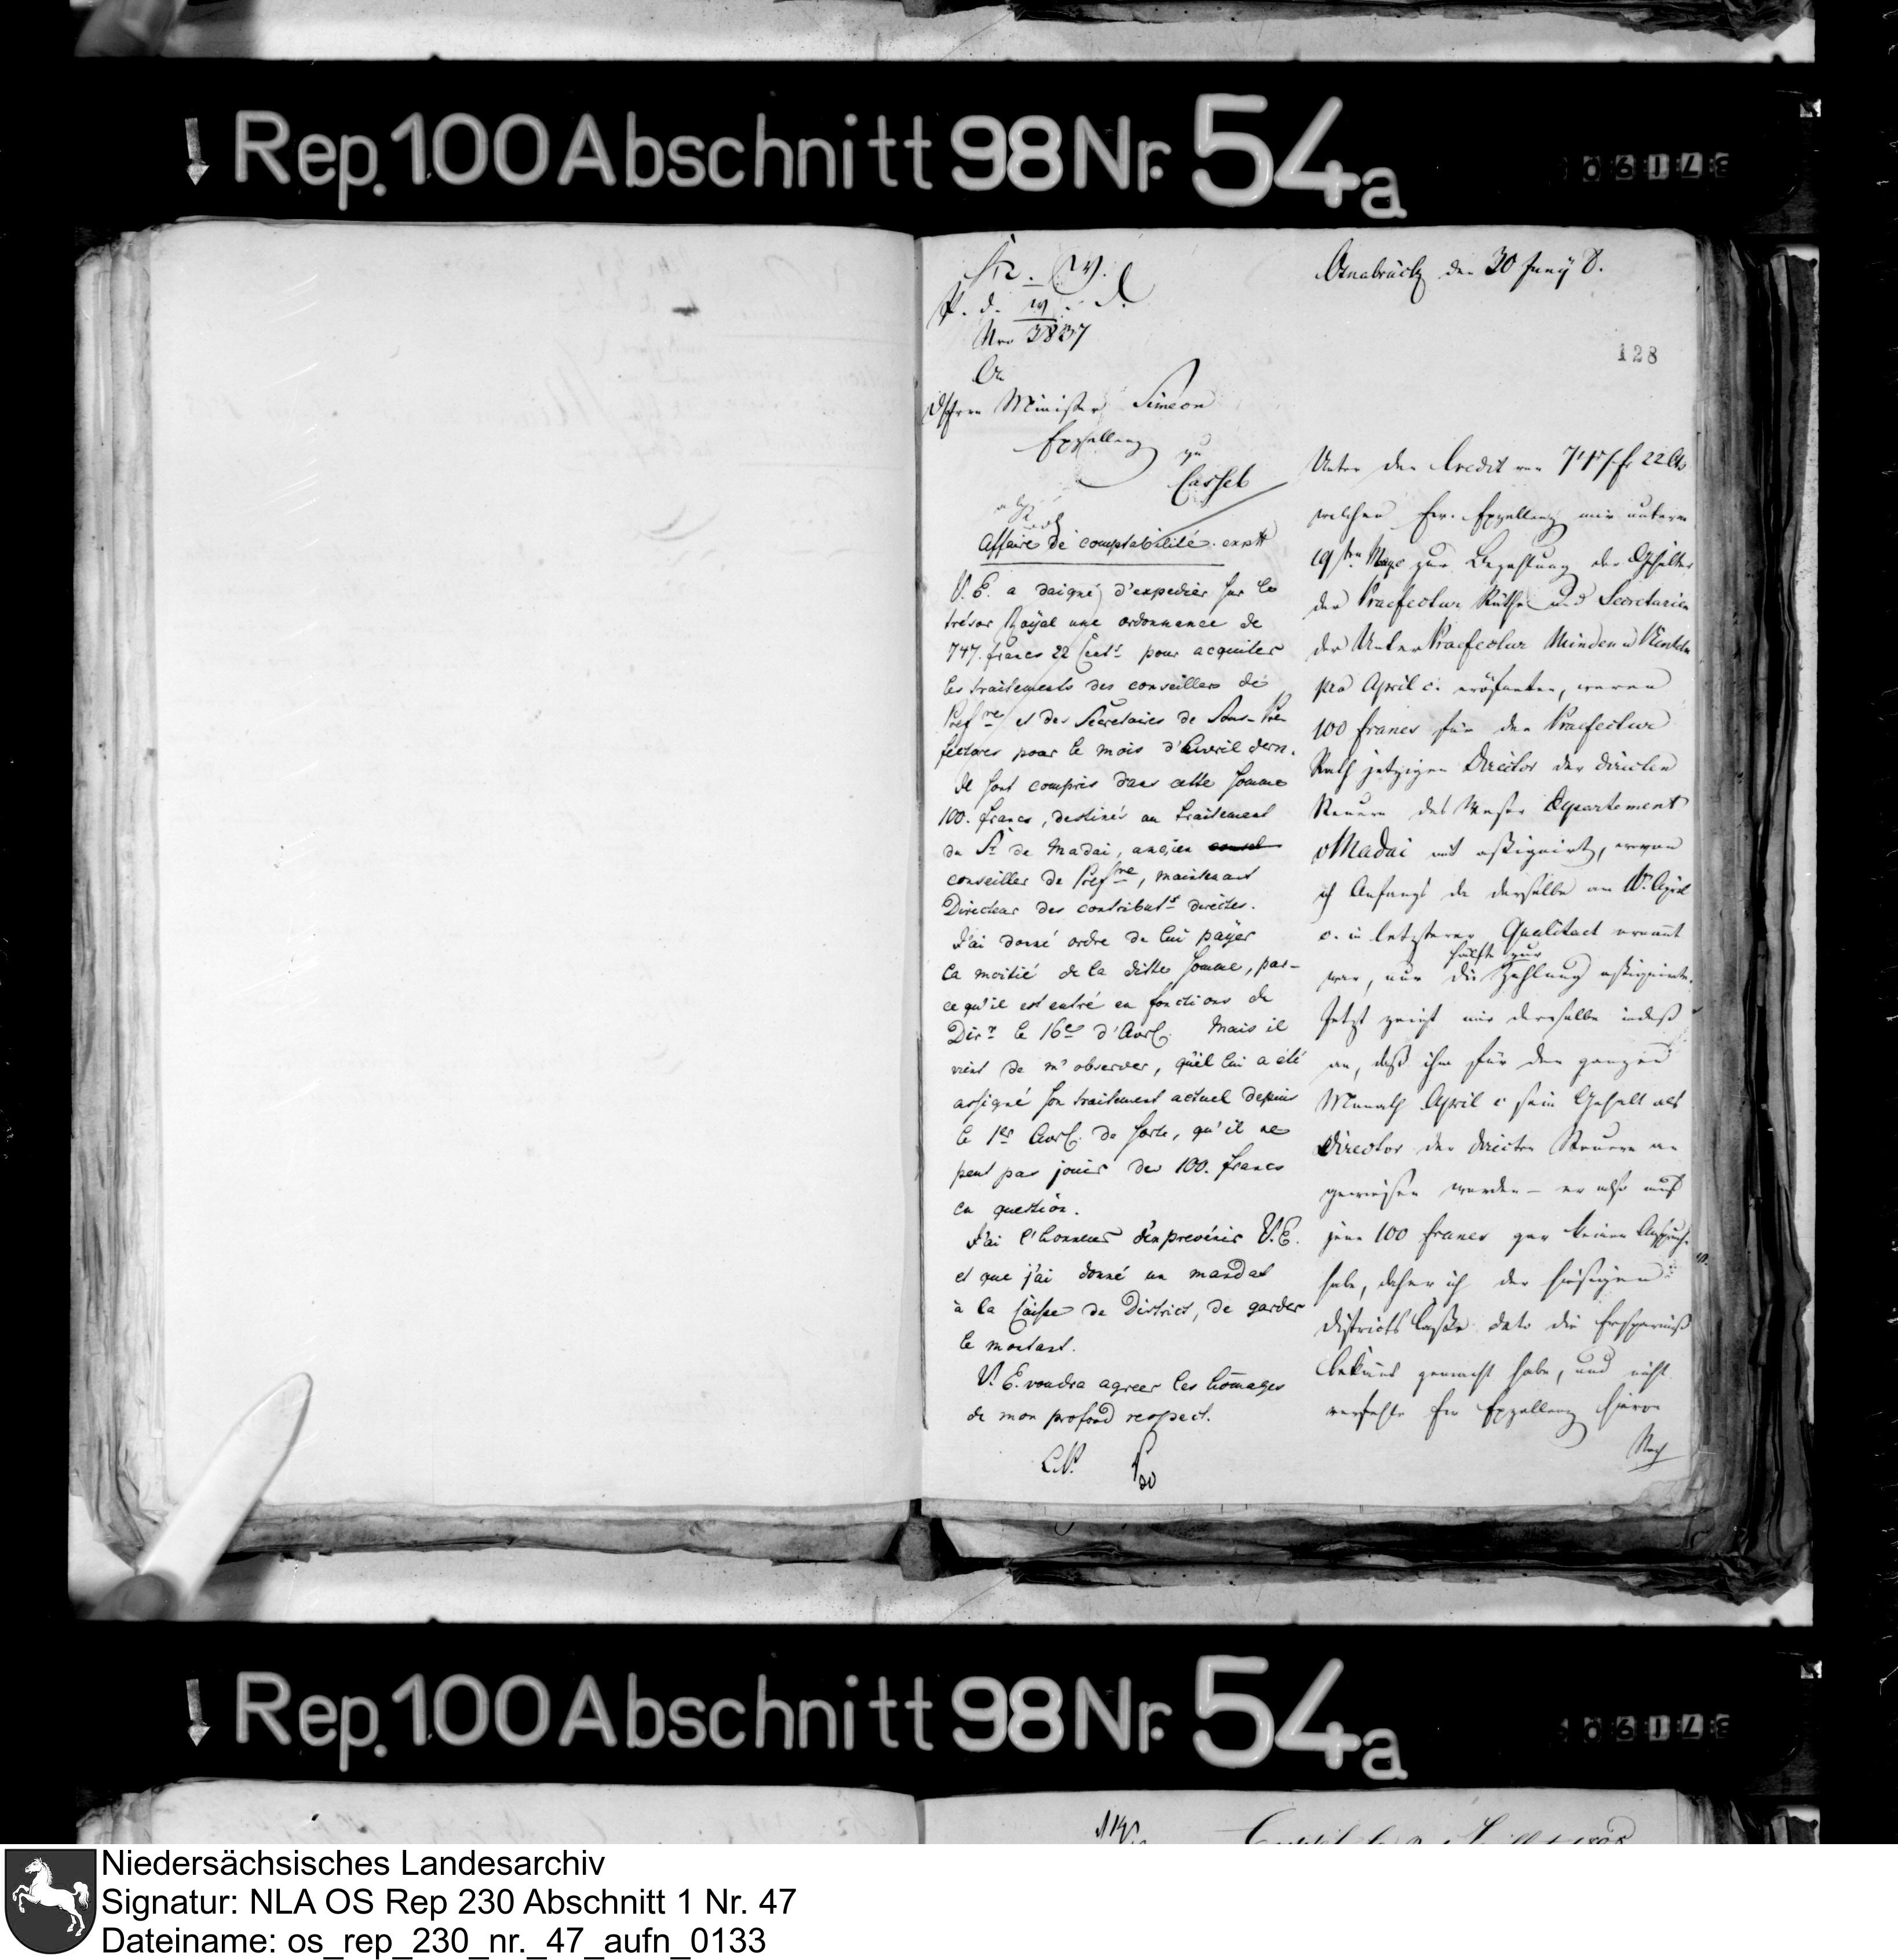 Rep. 100 Abschnitt 98 Nr. 54a
Osnabrück den 30 Juny 8.
Nro 3837
128
An
Minister Simeon
Exzellenz
zu
Cassel
Affaire de comptabilité.
V. E. a daigné d'expedier sur le
trésor Royal une ordonnance de
747. francs 22 Cent. pour acquiter
les traitements des conseillers de
Prefre et des Secretaires de Sous-Pre-
fectures pour le mois d'Avril dern.
Il sont compris dans cette somme
100. francs, destinés au traitement
du Sr. de Madai, ancien
conseiller de Prefre, maintenant
Directeur des contributs directes.
J'ai donné ordre de lui payer
la moitié de la ditte somme, par-
ce qu'il est entré en fonctions de
Dirr. le 16e d'Avrl. Mais il
vient de m'observer, qu'il lui a été
assigné son traitement actuel depuis
le 1er Avrl. de sorte, qu'il ne
peut pas jouir des 100. francs
en question.
J'ai l'honneur d'en prevénir V. E.
et que j'ai donné un mandat
à la Caisse de District, de garder
le montant.
V. E. voudra agreer les hom̄ages
de mon profond respect.
Unter dem Credit von 747 fr 22 Cts
welchen Ew. Exzellenz mir unterm
19ten May zur Bezahlung der Gehälter
der Praefectur Räthe und Secretarien
der Unter Praefectur Minden u Rinteln
pro April c. eröfneten, waren
100 francs für den Praefectur
Rath jetzigen Director der directen
Steuern des Weser Departement
v Madai mit assignirt, wovon
ich Anfangs da derselbe am 16n. April
c. in letzterer Qualitaet ernannt
war, nur die Hälfte zur Zahlung assignirte.
Jetzt zeigt mir derselbe indeß
an, daß ihm für den ganzen
Monath April c sein Gehalt als
Director der directen Steuern an
gewiesen worden – er also auf
jene 100 francs gar keinen Anspruch
habe, daher ich der hiesigen
Districts Casse dato die Ersparniß
bekannt gemacht habe, und nicht
verfehle Ew Exzellenz hiervon
Rep. 100 Abschnitt 98 Nr. 54a
Niedersächsisches Landesarchiv
Signatur: NLA OS Rep 230 Abschnitt 1 Nr. 47
Dateiname: os_rep_230_nr._47_aufn_0133